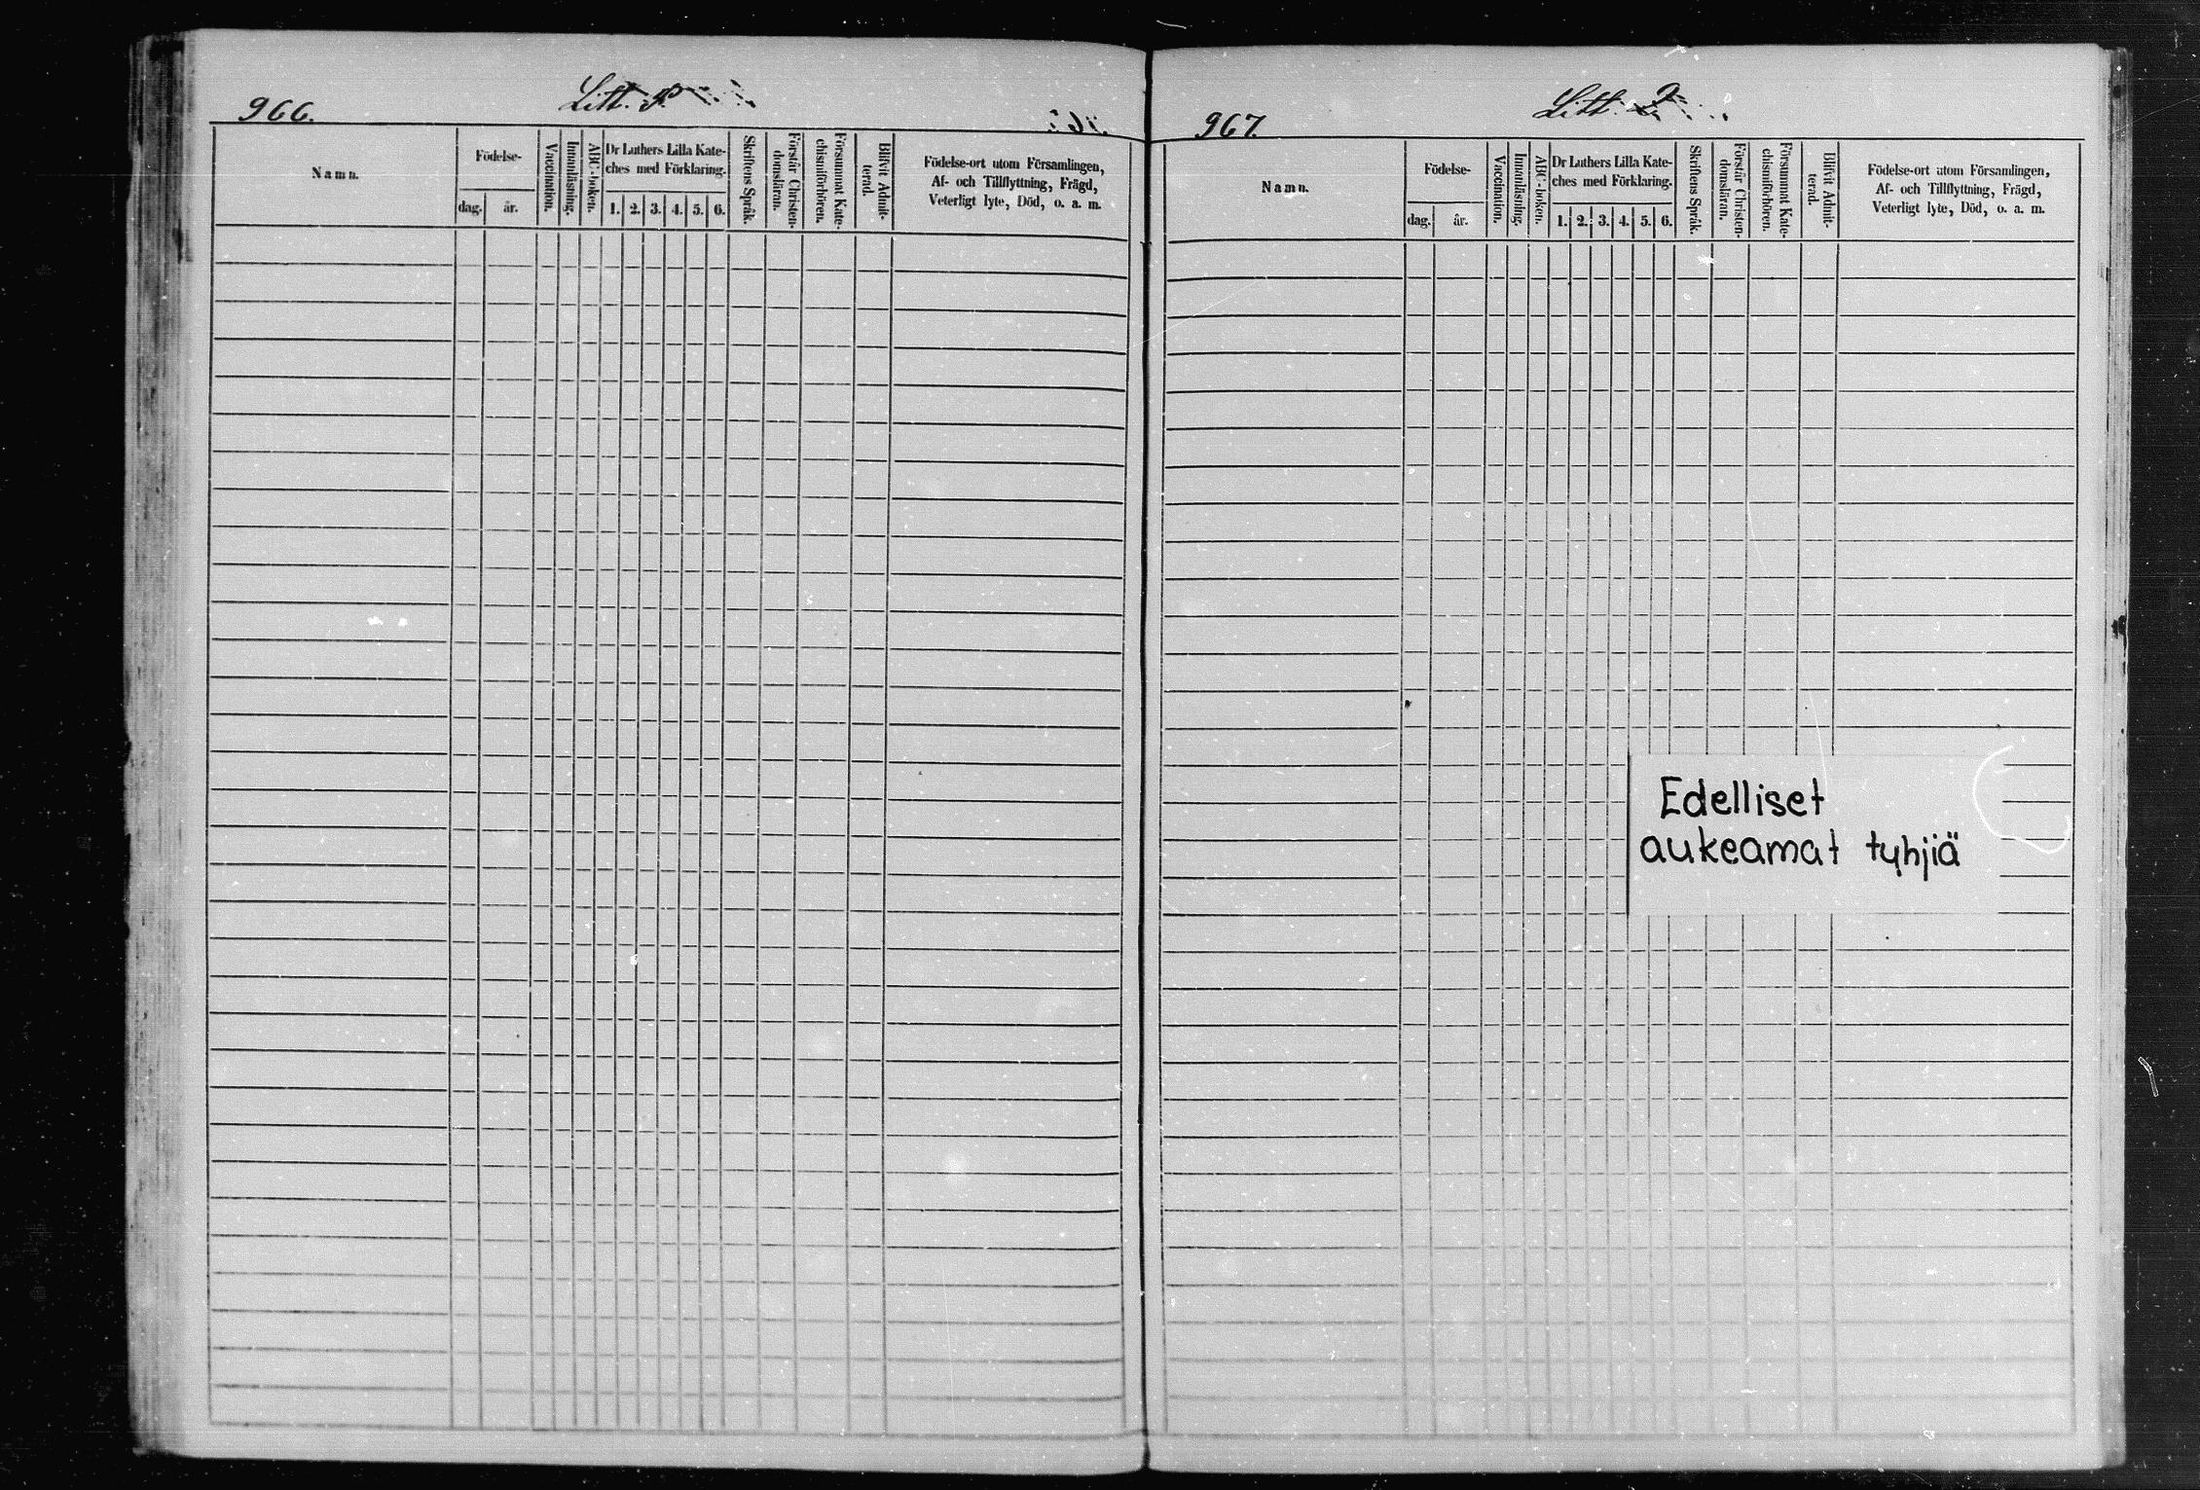 966.
Litt. P.
Namn.
Födelse-
dag.
år.
Vaccination.
Innanläsning.
ABC-boken.
Dr Luthers Lilla Kate-
ches med Förklaring.
1. 2. 3. 4. 5. 6.
Skriftens Språk.
Förstår Christen-
domsläran.
Försummat Kate-
chismiförhören.
Blifvit Admit-
terad.
Födelse-ort utom Församlingen,
Af- och Tillflyttning, Frägd,
Veterligt lyte, Död, o. a. m.
967.
Litt.
Namn.
Födelse-
dag.
år.
Vaccination.
Innanläsning.
ABC-boken.
Dr Luthers Lilla Kate-
ches med Förklaring.
1. 2. 3. 4. 5. 6.
Skriftens Språk.
Förstår Christen-
domsläran.
Försummat Kate-
chismiförhören.
Blifvit Admit-
terad.
Födelse-ort utom Församlingen,
Af- och Tillflyttning, Frägd,
Veterligt lyte, Död, o. a. m.
Edelliset
aukeamat tyhjiä